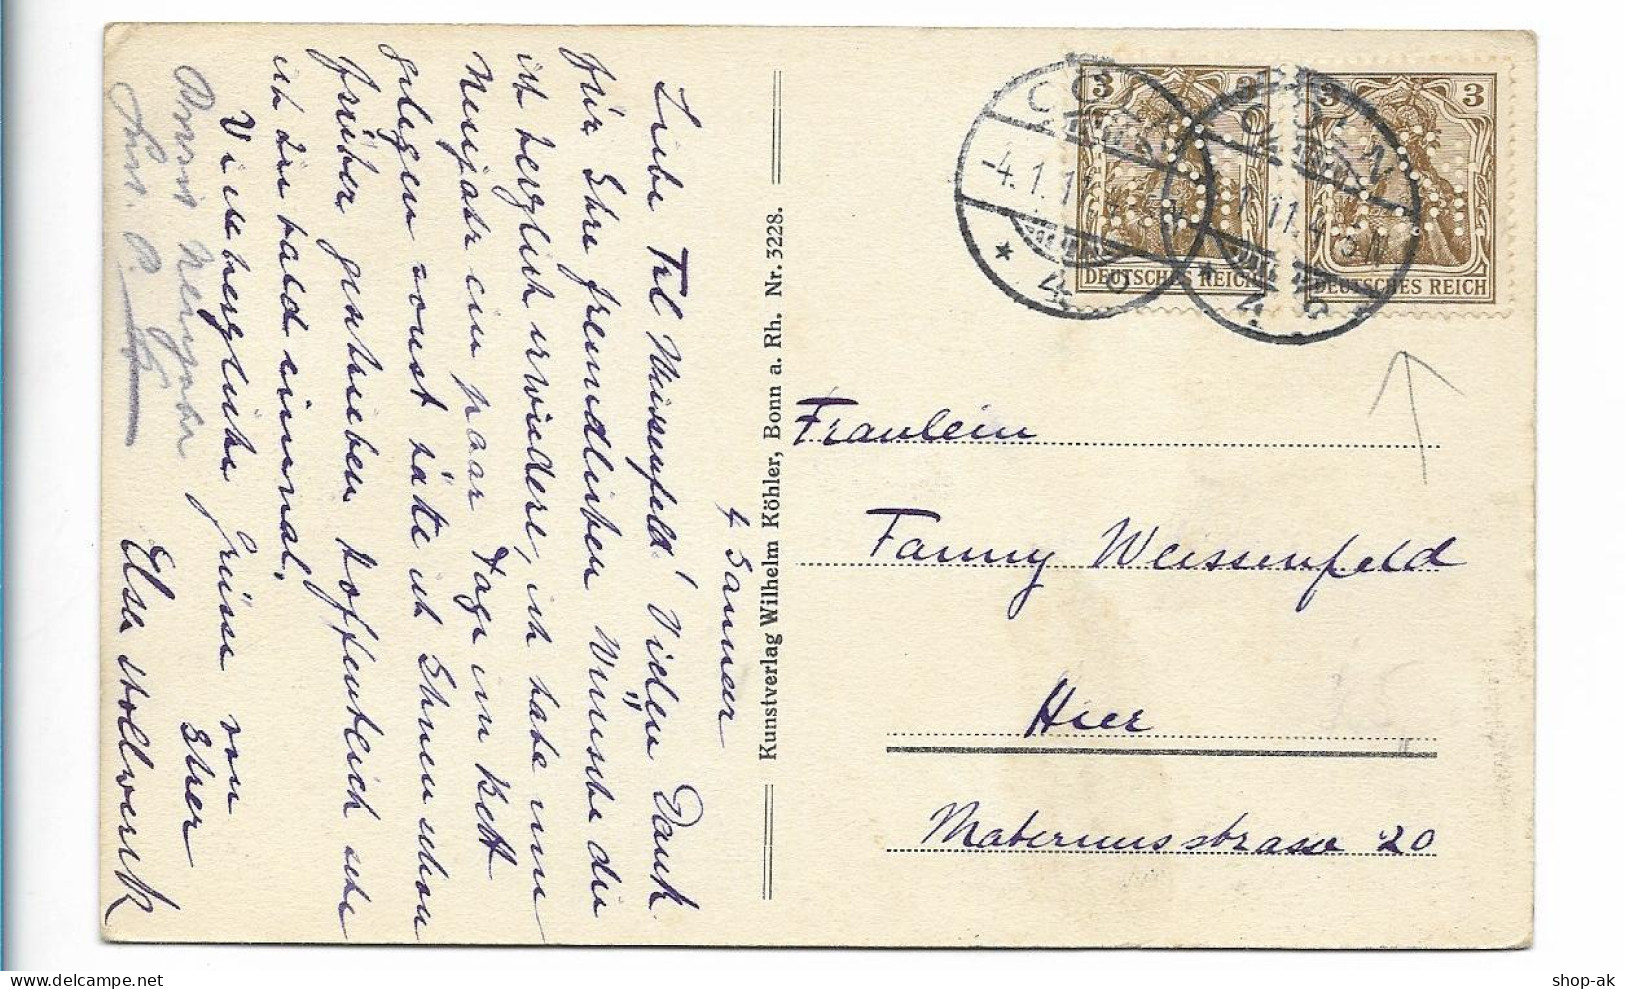 4 Januar
Liebe Frl Weissenfeld! Vielen Dank
für Ihre freundlichen Wünsche die
ich herzlich erwidere, ich habe nun
Neujahr ein paar Tage im Bett
gelegen sonst hätte ich Ihnen schon
früher geschrieben hoffentlich sehe
ich Sie bald einmal.
Viele herzliche Grüsse von
Ihrer
Elsa Stollwerck
Prosit Neujahr
Kunstverlag Wilhelm Köhler, Bonn a. Rh. Nr. 3228.
3 3
DEUTSCHES REICH
3 3
DEUTSCHES REICH
CÖLN
-4.1.11.
* 4
CÖLN
1.11.4-5N
* 4
Fraulein
Fanny Weissenfeld
Hier
Maternusstrasse 20
shop-ak